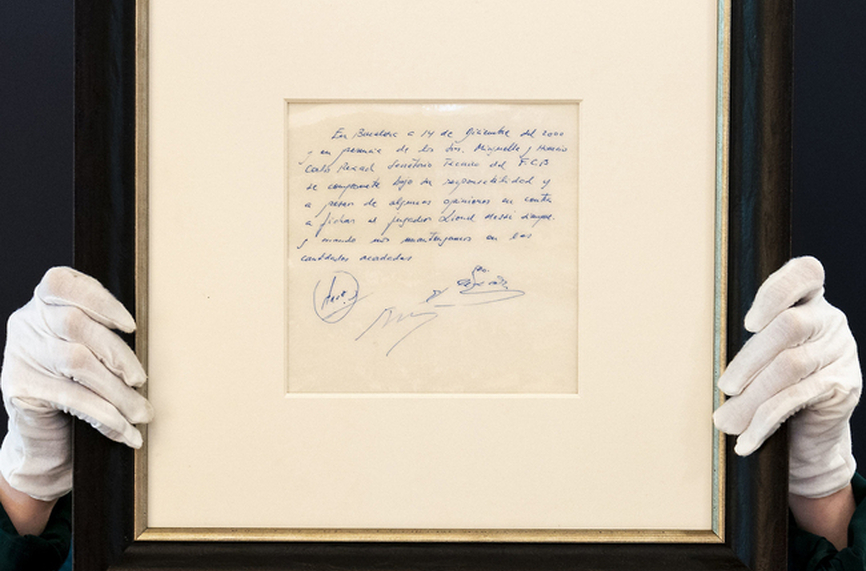 En Barcelona a 14 de Diciembre del 2000
y en presencia de los Sres. Minguella y Horacio
Carlos Rexach Secretario Tecnico del F.C.B
se compromete bajo su responsabilidad y
a pesar de algunas opiniones en contra
a fichar al jugador Lionel Messi siempre
y cuando nos mantengamos en las
cantidades acordadas